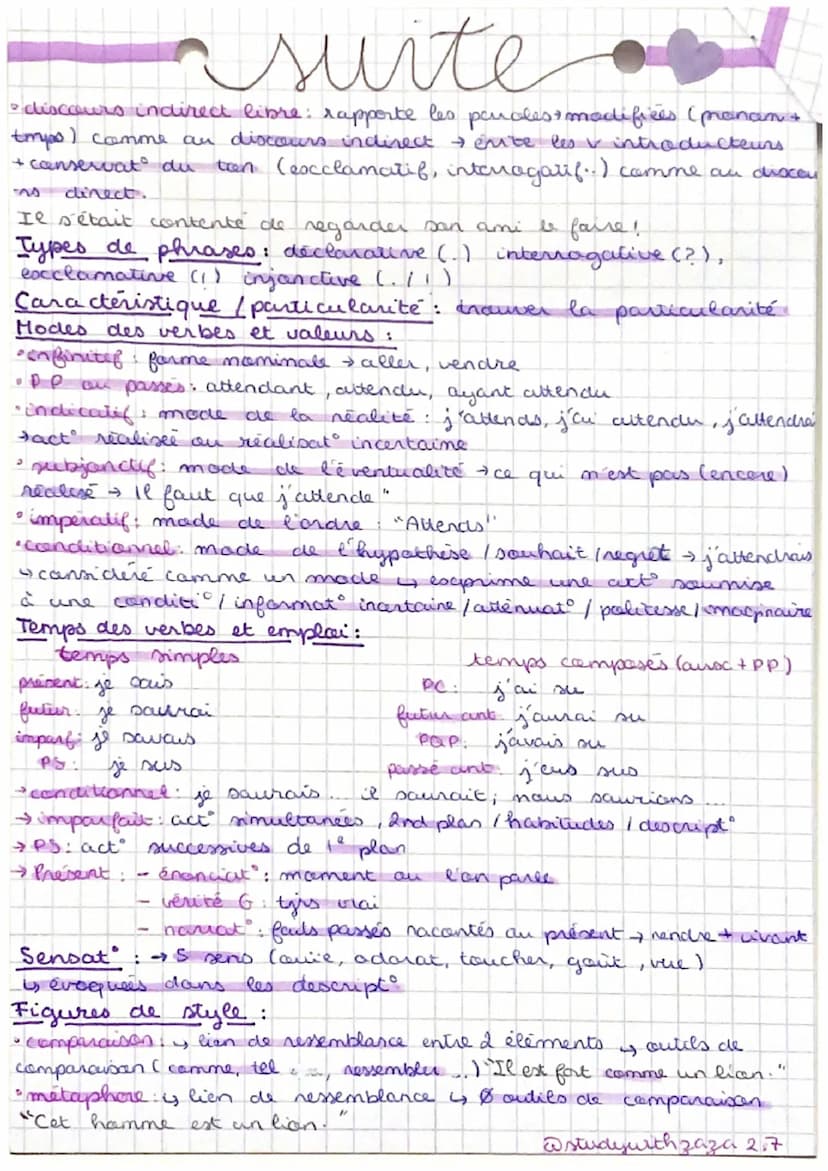 suite
• discours indirect libre : rapporte les paroles modifiées (pronom +
tmps) comme au discours indirect → évite les v introducteurs
+ conservat° du ton (exclamatif, interrogatif..) comme au discou
rs direct.
Il s'était contenté de regarder son ami le faire !
Types de phrases : déclarative (.) interrogative (?),
exclamative (!) injonctive (. / !)
Caractéristique / particularité : trouver la particularité
Modes des verbes et valeurs :
• infinitif : forme nominale → aller, vendre
• PP ou passés : attendant, attendu, ayant attendu
• indicatif : mode de la réalité : j'attends, j'ai attendu, j'attendrai
→ act° réalisée ou réalisat° incertaine
• subjonctif : mode de l'éventualité → ce qui n'est pas (encore)
réalisé → Il faut que j'attende "
• impératif : mode de l'ordre : "Attends"
• conditionnel : mode de l'hypothèse / souhait / regret → j'attendrais
↳ considéré comme un mode ↳ exprime une act° soumise
à une conditi° / informat° incertaine / atténuat° / politesse / imaginaire
Temps des verbes et emploi :
temps simples temps composés (auxc + PP)
présent : je sais PC : j'ai su
futur : je saurai futur ant : j'aurai su
imparf : je savais PQP : j'avais su
PS : je sus passé ant : j'eus sus
→ conditionnel : je saurais ... il saurait ; nous saurions ...
→ imparfait : act° simultanées, 2nd plan / habitudes / descript°
→ PS : act° successives de 1e plan
→ Présent : - énonciat° : moment où l'on parle
- vérité G : tjrs vrai
- narrat° : faits passés racontés au présent → rendre + vivant
Sensat° : → 5 sens (ouïe, odorat, toucher, goût, vue)
↳ évoquées dans les descript°
Figures de style :
• comparaison : ↳ lien de ressemblance entre 2 éléments ↳ outils de
comparaison (comme, tel, ressembler ..) "Il est fort comme un lion."
• métaphore : ↳ lien de ressemblance ↳ Ø outils de comparaison
"Cet homme est un lion."
@studywithzaza 2.7